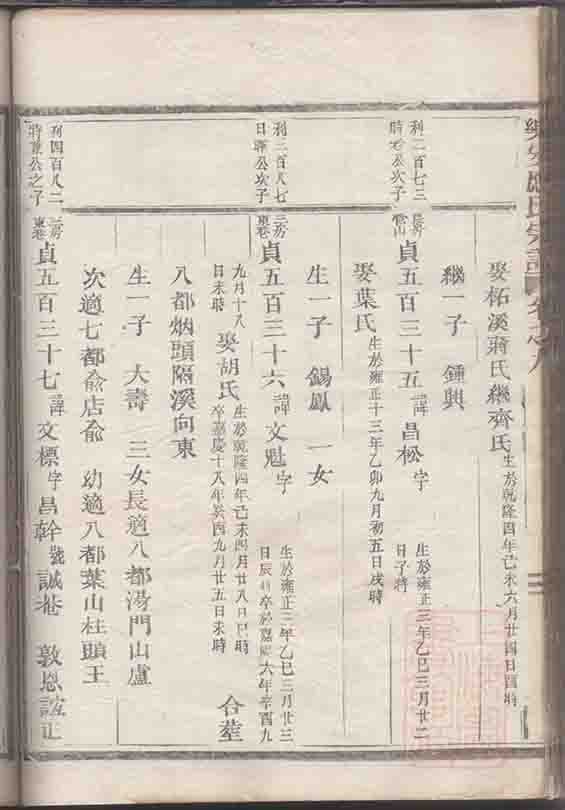 樂安應氏宗譜 卷之八
娶柘溪蔣氏繼齊氏 生於乾隆四年己未六月廿四日酉時
繼一子 鍾興
利二百七三
時 公次子
貞五百三十五 諱昌松字 生於雍正三年乙巳三月廿二日子時
娶葉氏 生於雍正十三年乙卯九月初五日戌時
生一子 錫鳳 一女
利三百八七
日 公次子
三房東巷 貞五百三十六 諱文魁字 生於雍正三年乙巳三月廿三日辰時卒於嘉慶六年辛酉九
九月十八日未時 娶胡氏 生於乾隆四年己未四月廿八日巳時卒嘉慶十八年癸酉九月廿五日未時 合塟
八都烟頭隔溪向東
生一子 大壽 三女長適八都湯門山盧
次適七都俞店俞 幼適八都葉山柱頭王
利四百八二
時 公之子
三房東巷 貞五百三十七 諱文標字昌幹號誠菴 敦恩誼正